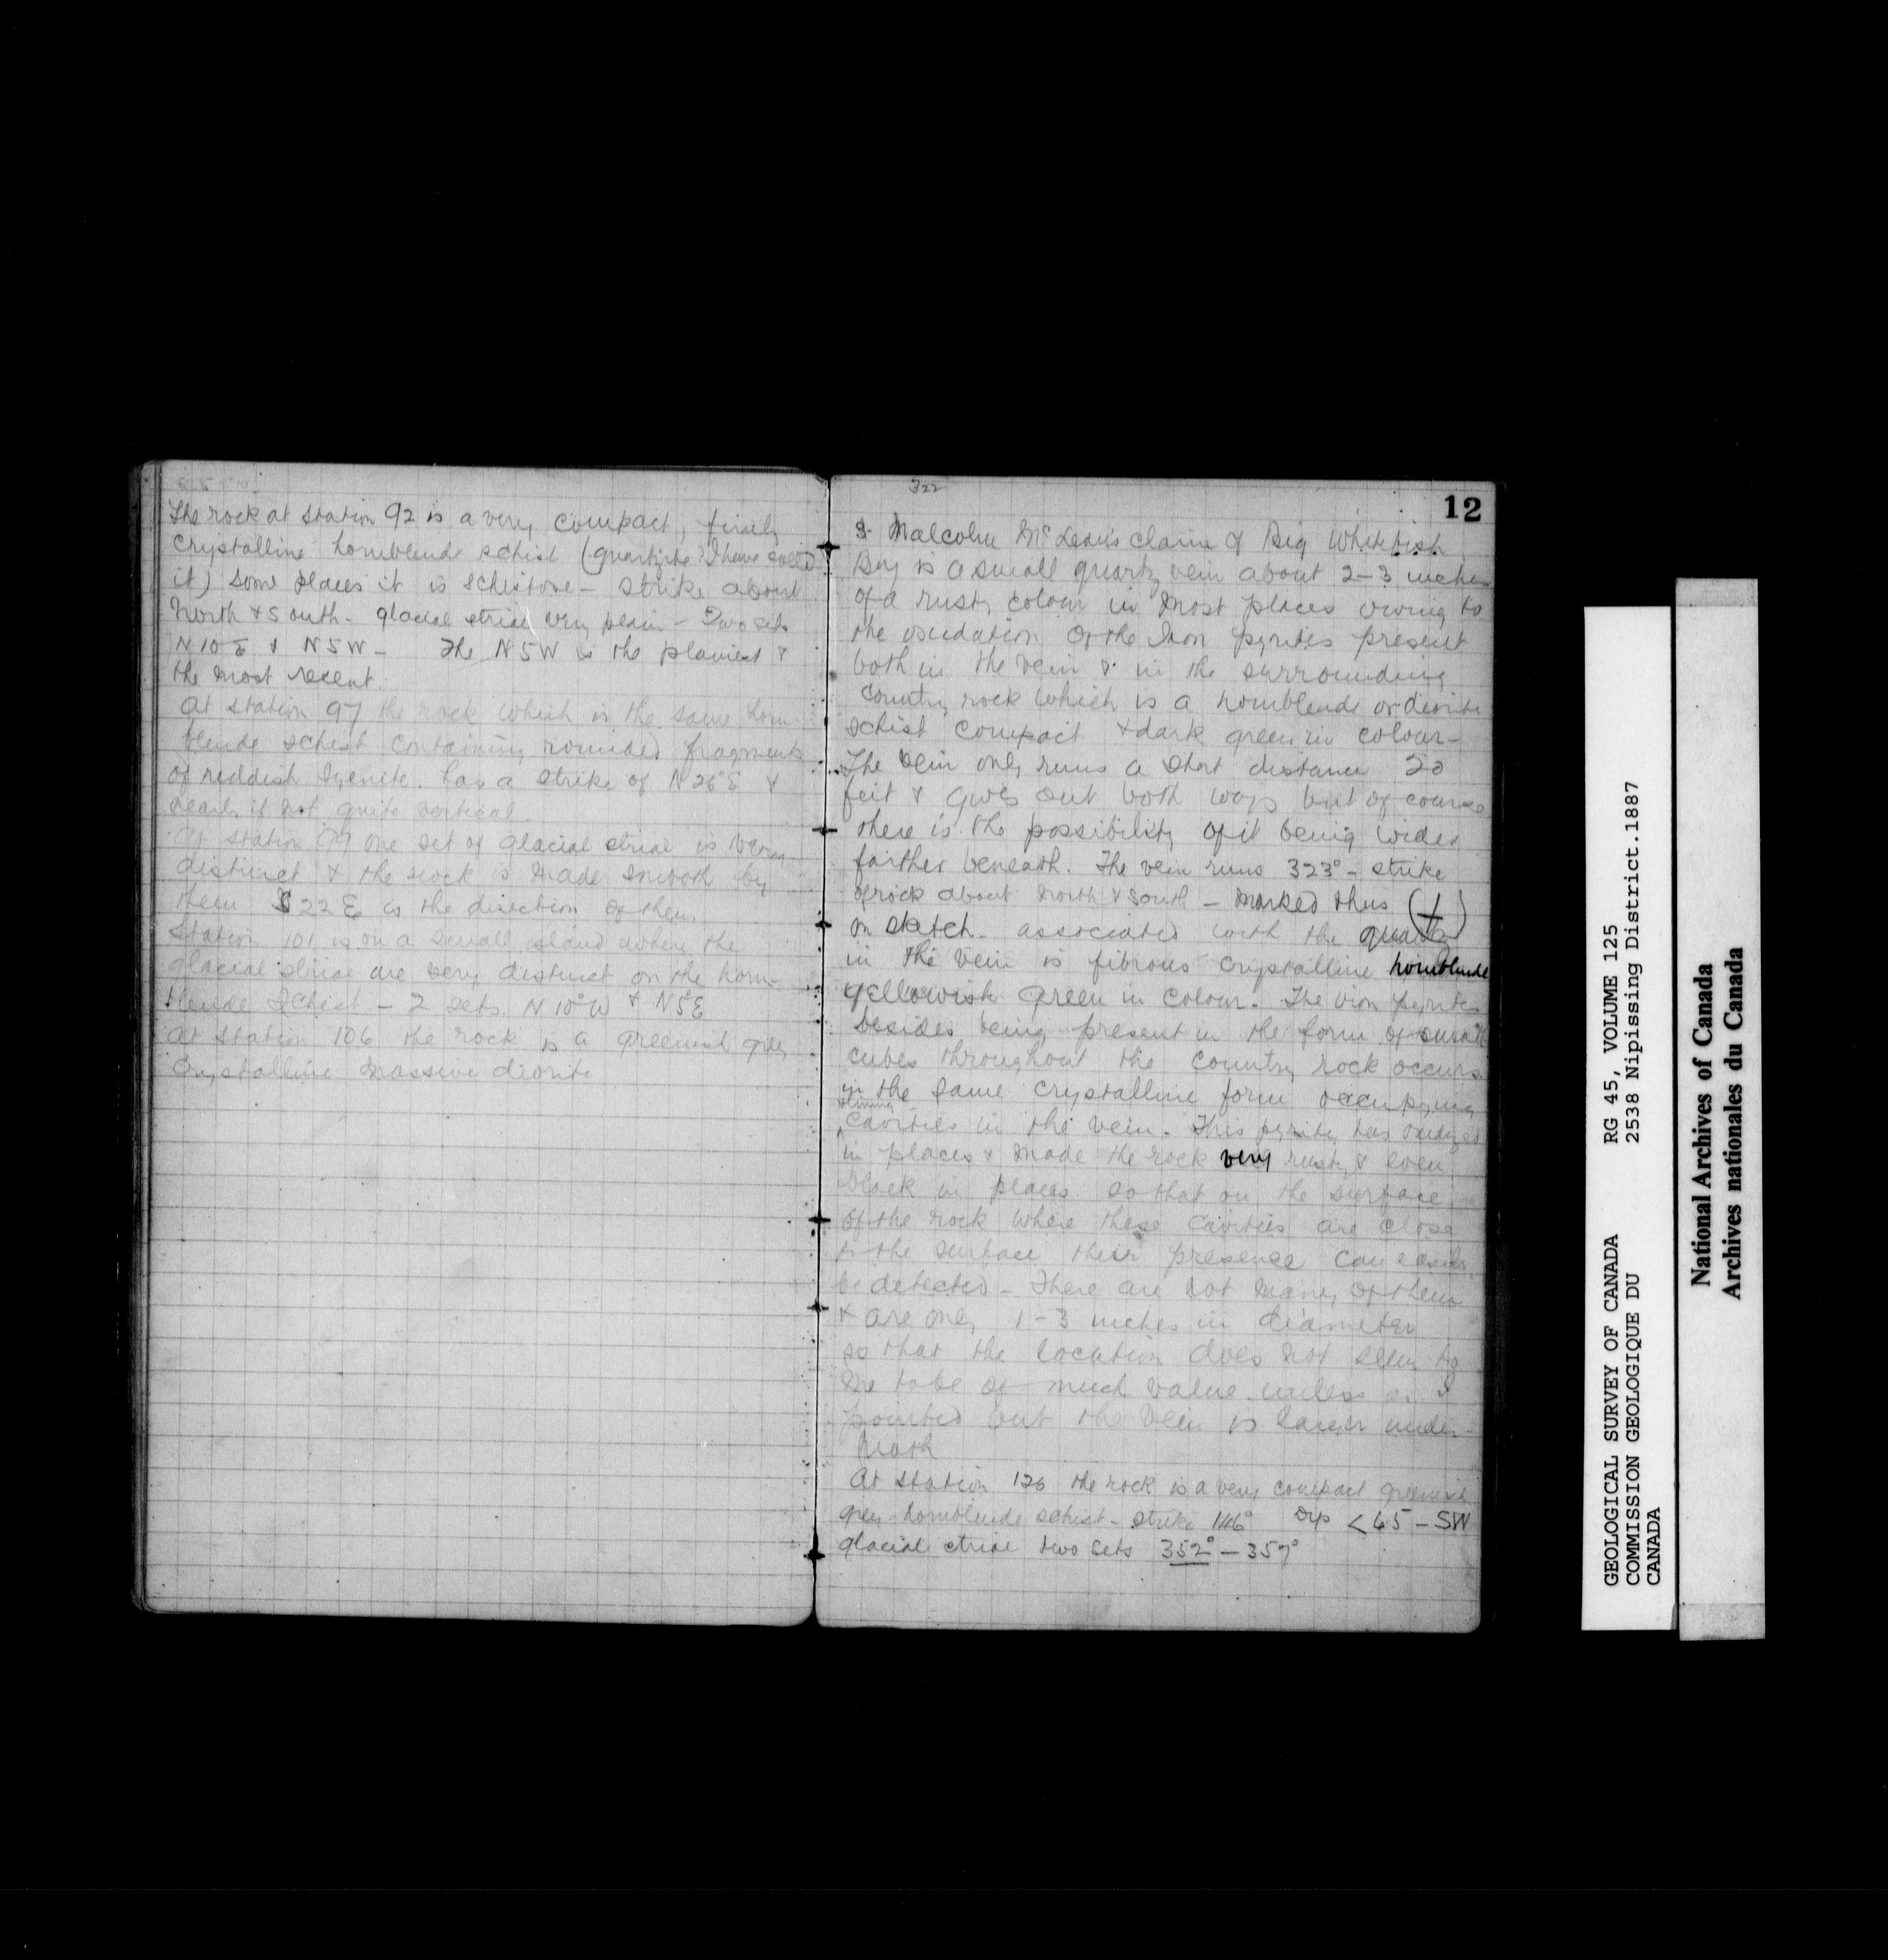 The rock at station 92 is a very compact, finely
crystalline hornblende schist (quartzite I have called
it) some places it is schistose - strike about
North & South - glacial striae very plain - Two sets
N 10 E & N 5 W - The N 5 W is the plainest &
the most recent.
At station 97 the rock which is the same horn-
blende schist containing rounded fragments
of reddish syenite. has a strike of N 26° E &
nearly if not quite vertical.
At station 99 one set of glacial striae is very
distinct & the rock is made smooth by
them S 22 E is the direction of them.
Station 101 is on a small island where the
glacial striae are very distinct on the horn-
blende schist - 2 sets N 10° W & N 5° E
At station 106 the rock is a greenish grey
crystalline massive diorite
322
12
Malcolm McLean's claim of Big Whitefish
Bay is a small quartz vein about 2-3 inches
of a rusty colour in most places owing to
the oxidation of the Iron pyrites present
both in the vein & in the surrounding
country rock which is a hornblende or diorite
schist compact & dark green in colour -
The vein only runs a short distance 20
feet & gives out both ways but of course
there is the possibility of it being wider
farther beneath. The vein runs 323° - strike
of rock about North & South - marked thus (+)
on sketch. associated with the quartz
in the vein is fibrous crystalline hornblende
yellowish green in colour. The iron pyrites
besides being present in the form of small
cubes throughout the country rock occurs
in the same crystalline form occupying
& lining
cavities in the vein. This pyrites has oxidized
in places & made the rock very rusty & even
black in places so that on the surface
of the rock where these cavities are close
to the surface their presence can easily
be detected - There are not many of them
& are only 1-3 inches in diameter
so that the location does not seem to
me to be of much value unless as I
pointed out the vein is larger under-
neath
At station 126 the rock is a very compact greenish
grey hornblende schist - strike 146° Dip < 65 - SW
glacial striae two sets 352° - 357°
GEOLOGICAL SURVEY OF CANADA RG 45, VOLUME 125
COMMISSION GEOLOGIQUE DU 2538 Nipissing District.1887
CANADA
National Archives of Canada
Archives nationales du Canada